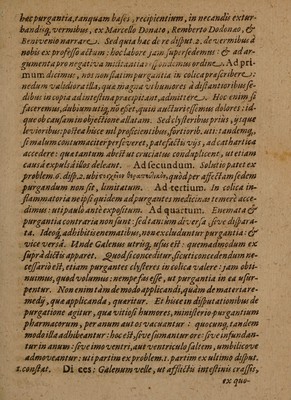 hæc purgantia, tanquam bases, recipientium, in necandis extur-
bandisq; vermibus, ex Marcello Donato, Remberto Dodonæo, &
Benivenio narrare. Sed quia hac de re disput. 2. de vermibus à
nobis ex professo actum: hoc labore jam supersedemus: & ad ar-
gumenta pro negativa militantia respondemus ordine. Ad pri-
mum dicimus, nos non fatim purgantia in colica præscribere:
nedum validiora illa, quæ magna vi humores à distantioribus se-
dibus in copia ad intestina præcipitant, admittere. Hoc enim si
faceremus, dubium utiq; nō esset, quin auctari essimus dolores: id-
que ob causam in objectione allatam. Sed clysteribus prius, usque
levioribus: postea hisce nil proficientibus, fortiorib. uti: tandemq,
si malum contumaciter perseveret, patefactis vijs, ad cathartica
accedere: qua tantum abest ut cruciatus conduplicent, ut etiam
causâ expulsâ illos deleant. Ad secundum. Solutio patet ex
problem. 6. disp. 2. ubi quòd per affectam sedem
purgandum non sit, limitatum. Ad tertium. In colica in-
flammatoria neipsi quidem ad purgantes medicinas temerè acce-
dimus: uti paulò antè expositum. Ad quartum. Enemata &
purgantia contraria non sunt: sed tantum diversa, sive dispara-
ta. Ideoq; adhibitis enematibus, non excluduntur purgantia: &
vice versâ. Unde Galenus utriq; usus est: quemadmodum ex
suprà dictis apparet. Quod si conceditur, sicuti concedendum ne-
cessariò est, etiam purgantes clysteres in colica valere: jam obti-
nuimus, quod volumus: nempe fas esse, ut purgantia in ea usur-
pentur. Non enim tàm de modo applicandi, quàm de materia re-
medij, qua applicanda, quæritur. Et hisce in disputationibus de
purgatione agitur, qua vitiosi humores, ministerio purgantium
pharmacorum, per anum aut os vacuantur: quocunq, tandem
modo illa adhibeantur: hoc est, sive sumantur ore: sive infundan-
tur in anum: sive imo ventri, aut ventriculo saltem, umbilicove
admoveantur: uti partim ex problem. 1. partim ex ultimo disput.
1. constat. Dices: Galenum velle, ut affectu intestini crassis,
ex quo-